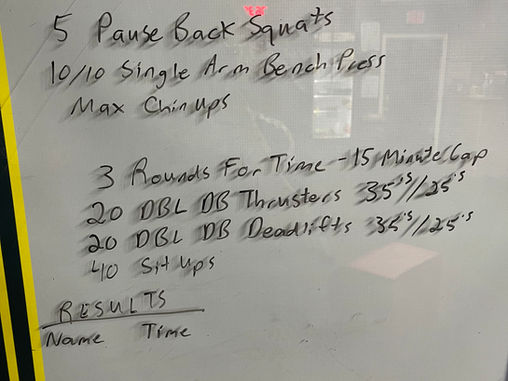 5 Pause Back Squats
10/10 Single Arm Bench Press
Max Chin Ups
3 Rounds For Time - 15 Minute Cap
20 DBL DB Thrusters 35's//25's
20 DBL DB Deadlifts 35's//25's
40 Sit Ups
RESULTS
Name Time